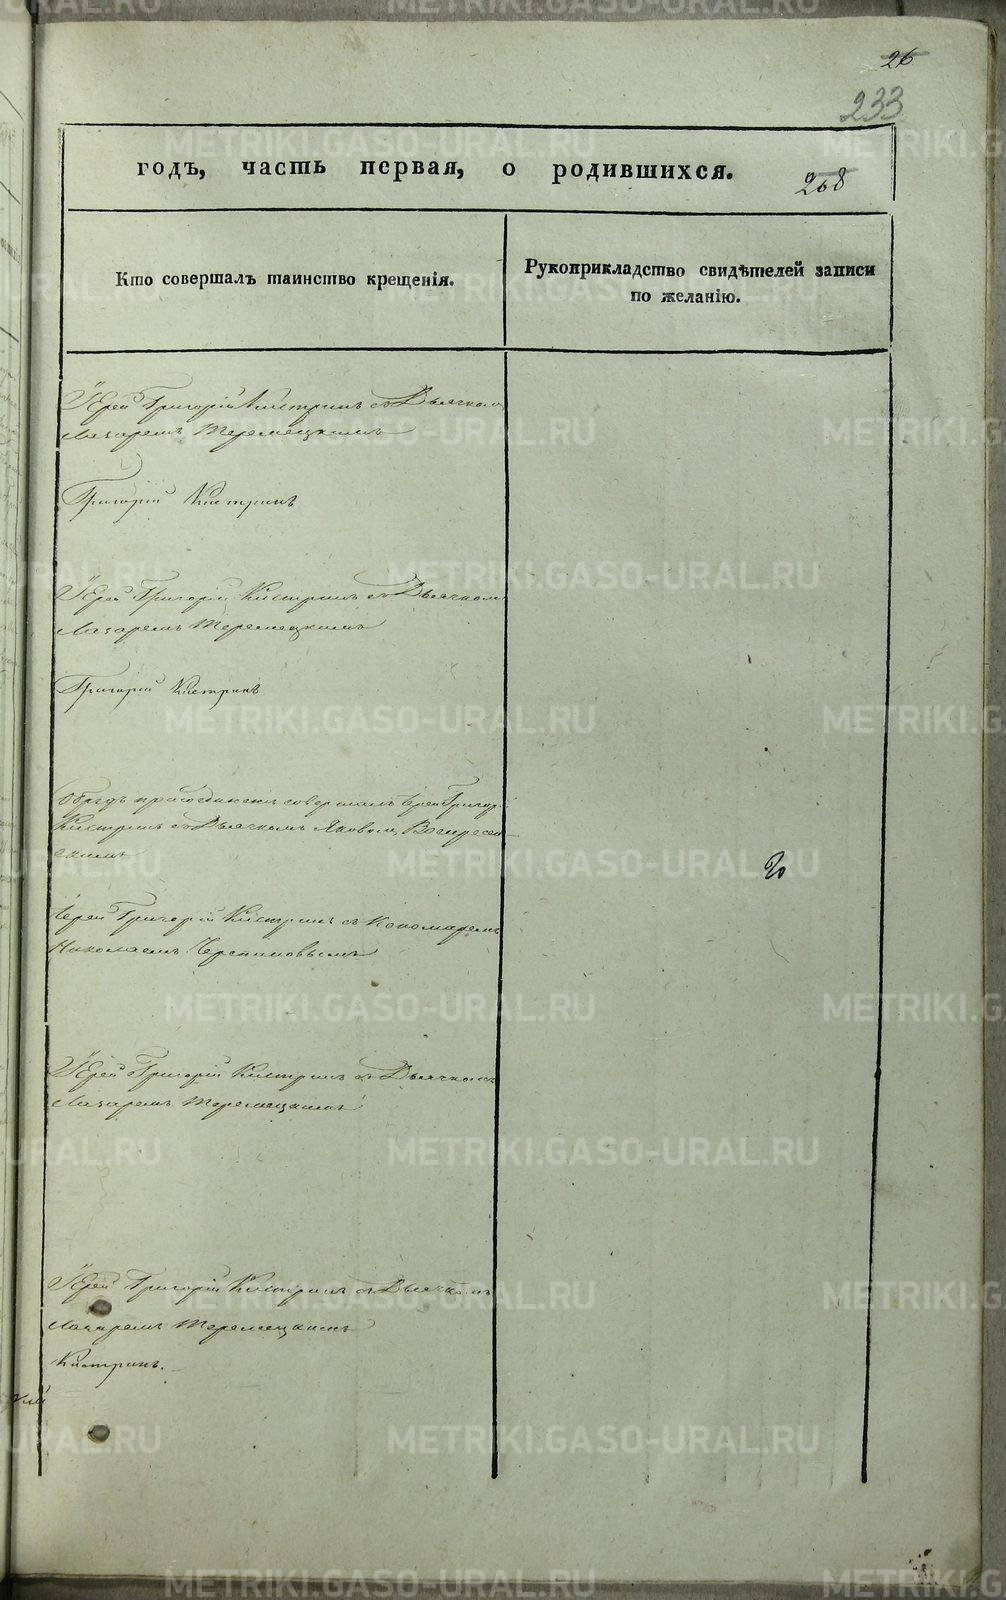 26
233
годъ, часть первая, о родившихся.
268
Кто совершалъ таинство крещенія.
Рукоприкладство свидѣтелей записи
по желанію.
Іерей Григорій Кистринъ съ Дьячком
Лазаремъ Теремецкимъ
Григорій Кистринъ
Іерей Григорій Кистринъ съ Дьячком
Лазаремъ Теремецкимъ
Григорій Кистринъ
Обрядъ присоединенія совершалъ Іерей Григор
Кистринъ съ Дьячкомъ Яковом Воскресен-
скимъ
Іерей Григорій Кистринъ съ Пономаремъ
Николаемъ
Іерей Григорій Кистринъ съ Дьячкомъ
Лазаремъ Теремецкимъ
Іерей Григорій Кистринъ съ Дьячкомъ
Лазаремъ Теремецкимъ
Кистринъ.
METRIKI.GASO-URAL.RU